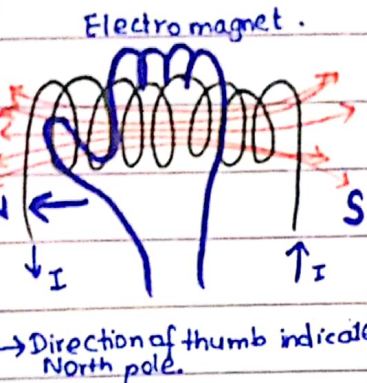 Electromagnet.
N
S
I
I
→ Direction of thumb indicate
North pole.